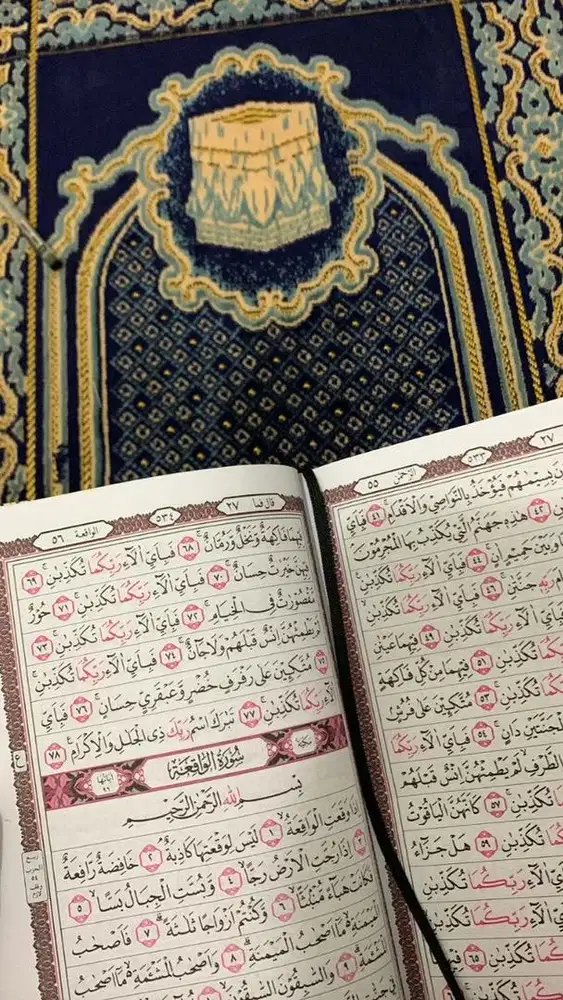 ٢٧ ٥٣٣ الرَّحْمٰن ٥٥
بِسِيْمٰهُمْ فَيُؤْخَذُ بِالنَّوَاصِيْ وَالْاَقْدَامِ ۚ ٤١ فَبِاَيِّ
٤٢ هٰذِهٖ جَهَنَّمُ الَّتِيْ يُكَذِّبُ بِهَا الْمُجْرِمُوْنَ
وَبَيْنَ حَمِيْمٍ اٰنٍ ۚ ٤٤ فَبِاَيِّ اٰلَاۤءِ رَبِّكُمَا تُكَذِّبٰنِ
رَبِّهٖ جَنَّتٰنِ ۚ ٤٦ فَبِاَيِّ اٰلَاۤءِ رَبِّكُمَا تُكَذِّبٰنِ
فَبِاَيِّ اٰلَاۤءِ رَبِّكُمَا تُكَذِّبٰنِ ٤٩ فِيْهِمَا عَيْنٰنِ
رَبِّكُمَا تُكَذِّبٰنِ ٥١ فِيْهِمَا مِنْ كُلِّ فَاكِهَةٍ
رَبِّكُمَا تُكَذِّبٰنِ ٥٣ مُتَّكِـِٕيْنَ عَلٰى فُرُشٍ
الْجَنَّتَيْنِ دَانٍ ۚ ٥٤ فَبِاَيِّ اٰلَاۤءِ رَبِّكُمَا
الطَّرْفِ لَمْ يَطْمِثْهُنَّ اِنْسٌ قَبْلَهُمْ
تُكَذِّبٰنِ ۚ ٥٧ كَاَنَّهُنَّ الْيَاقُوْتُ
تُكَذِّبٰنِ ٥٩ هَلْ جَزَاۤءُ
اٰلَاۤءِ رَبِّكُمَا تُكَذِّبٰنِ
اٰلَاۤءِ رَبِّكُمَا تُكَذِّبٰنِ
رَبِّكُمَا تُكَذِّبٰنِ
تُكَذِّبٰنِ ٦٥
قال فما ٢٧ ٥٣٤ الواقعة ٥٦
فِيْهِمَا فَاكِهَةٌ وَّنَخْلٌ وَّرُمَّانٌ ۚ ٦٨ فَبِاَيِّ اٰلَاۤءِ رَبِّكُمَا تُكَذِّبٰنِ ۚ ٦٩
فِيْهِنَّ خَيْرٰتٌ حِسَانٌ ۚ ٧٠ فَبِاَيِّ اٰلَاۤءِ رَبِّكُمَا تُكَذِّبٰنِ ۚ ٧١ حُوْرٌ
مَّقْصُوْرٰتٌ فِى الْخِيَامِ ۚ ٧٢ فَبِاَيِّ اٰلَاۤءِ رَبِّكُمَا تُكَذِّبٰنِ ۚ ٧٣
لَمْ يَطْمِثْهُنَّ اِنْسٌ قَبْلَهُمْ وَلَا جَاۤنٌّ ۚ ٧٤ فَبِاَيِّ اٰلَاۤءِ رَبِّكُمَا تُكَذِّبٰنِ ۚ
٧٥ مُتَّكِـِٕيْنَ عَلٰى رَفْرَفٍ خُضْرٍ وَّعَبْقَرِيٍّ حِسَانٍ ۚ ٧٦ فَبِاَيِّ
اٰلَاۤءِ رَبِّكُمَا تُكَذِّبٰنِ ٧٧ تَبٰرَكَ اسْمُ رَبِّكَ ذِى الْجَلٰلِ وَالْاِكْرَامِ ࣖ ٧٨
مكية سُوْرَةُ الْوَاقِعَةِ آياتها ٩٦
بِسْمِ اللّٰهِ الرَّحْمٰنِ الرَّحِيْمِ
اِذَا وَقَعَتِ الْوَاقِعَةُ ۙ ١ لَيْسَ لِوَقْعَتِهَا كَاذِبَةٌ ۘ ٢ خَافِضَةٌ رَّافِعَةٌ
٣ اِذَا رُجَّتِ الْاَرْضُ رَجًّا ۙ ٤ وَّبُسَّتِ الْجِبَالُ بَسًّا ۙ ٥
فَكَانَتْ هَبَاۤءً مُّنْۢبَثًّا ۙ ٦ وَّكُنْتُمْ اَزْوَاجًا ثَلٰثَةً ۗ ٧ فَاَصْحٰبُ
الْمَيْمَنَةِ ەۙ مَآ اَصْحٰبُ الْمَيْمَنَةِ ۗ ٨ وَاَصْحٰبُ الْمَشْـَٔمَةِ ەۙ مَآ اَصْحٰبُ
الْمَشْـَٔمَةِ ۗ ٩ وَالسّٰبِقُوْنَ السّٰبِقُوْنَ